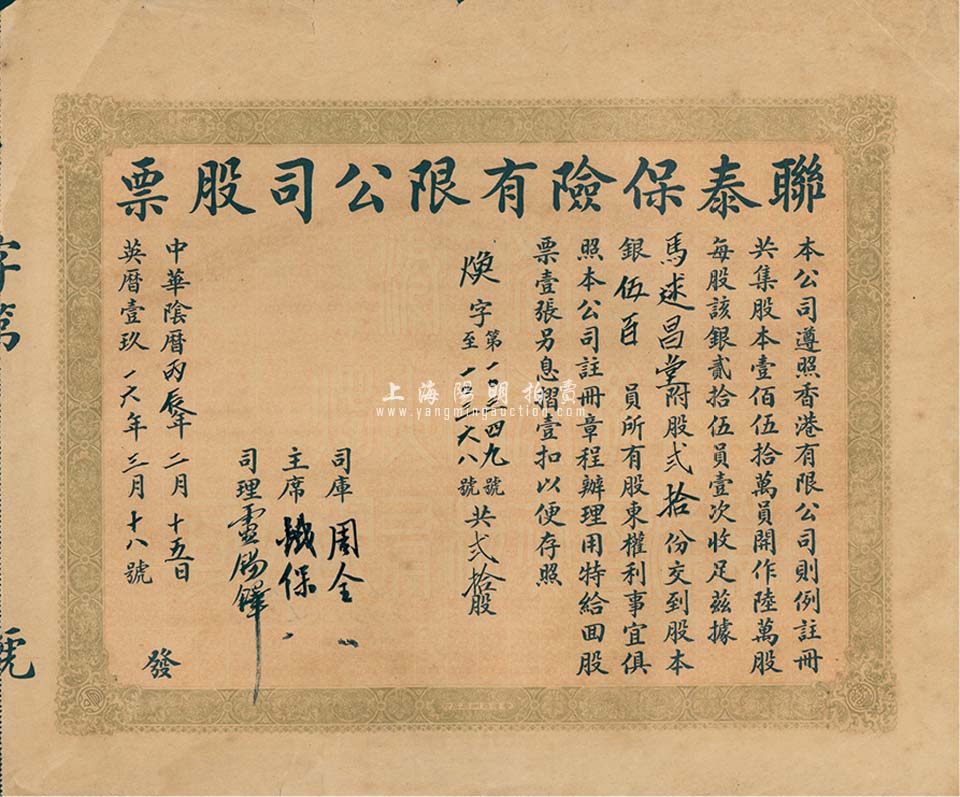 聯泰保險有限公司股票
本公司遵照香港有限公司則例註冊
共集股本壹佰伍拾萬員開作陸萬股
每股該銀貳拾伍員壹次收足茲據
馬逑昌堂附股弍拾份交到股本
銀伍百員所有股東權利事宜俱
照本公司註冊章程辦理用特給囬股
票壹張另息摺壹扣以便存照
煥字第一〇三四九號至一〇三六八號共弍拾股
司庫周全
主席
司理
中華陰曆丙辰年二月十五日
英曆壹玖一六年三月十八號
發
字第
號
上海陽明拍賣
www.yangmingauction.com